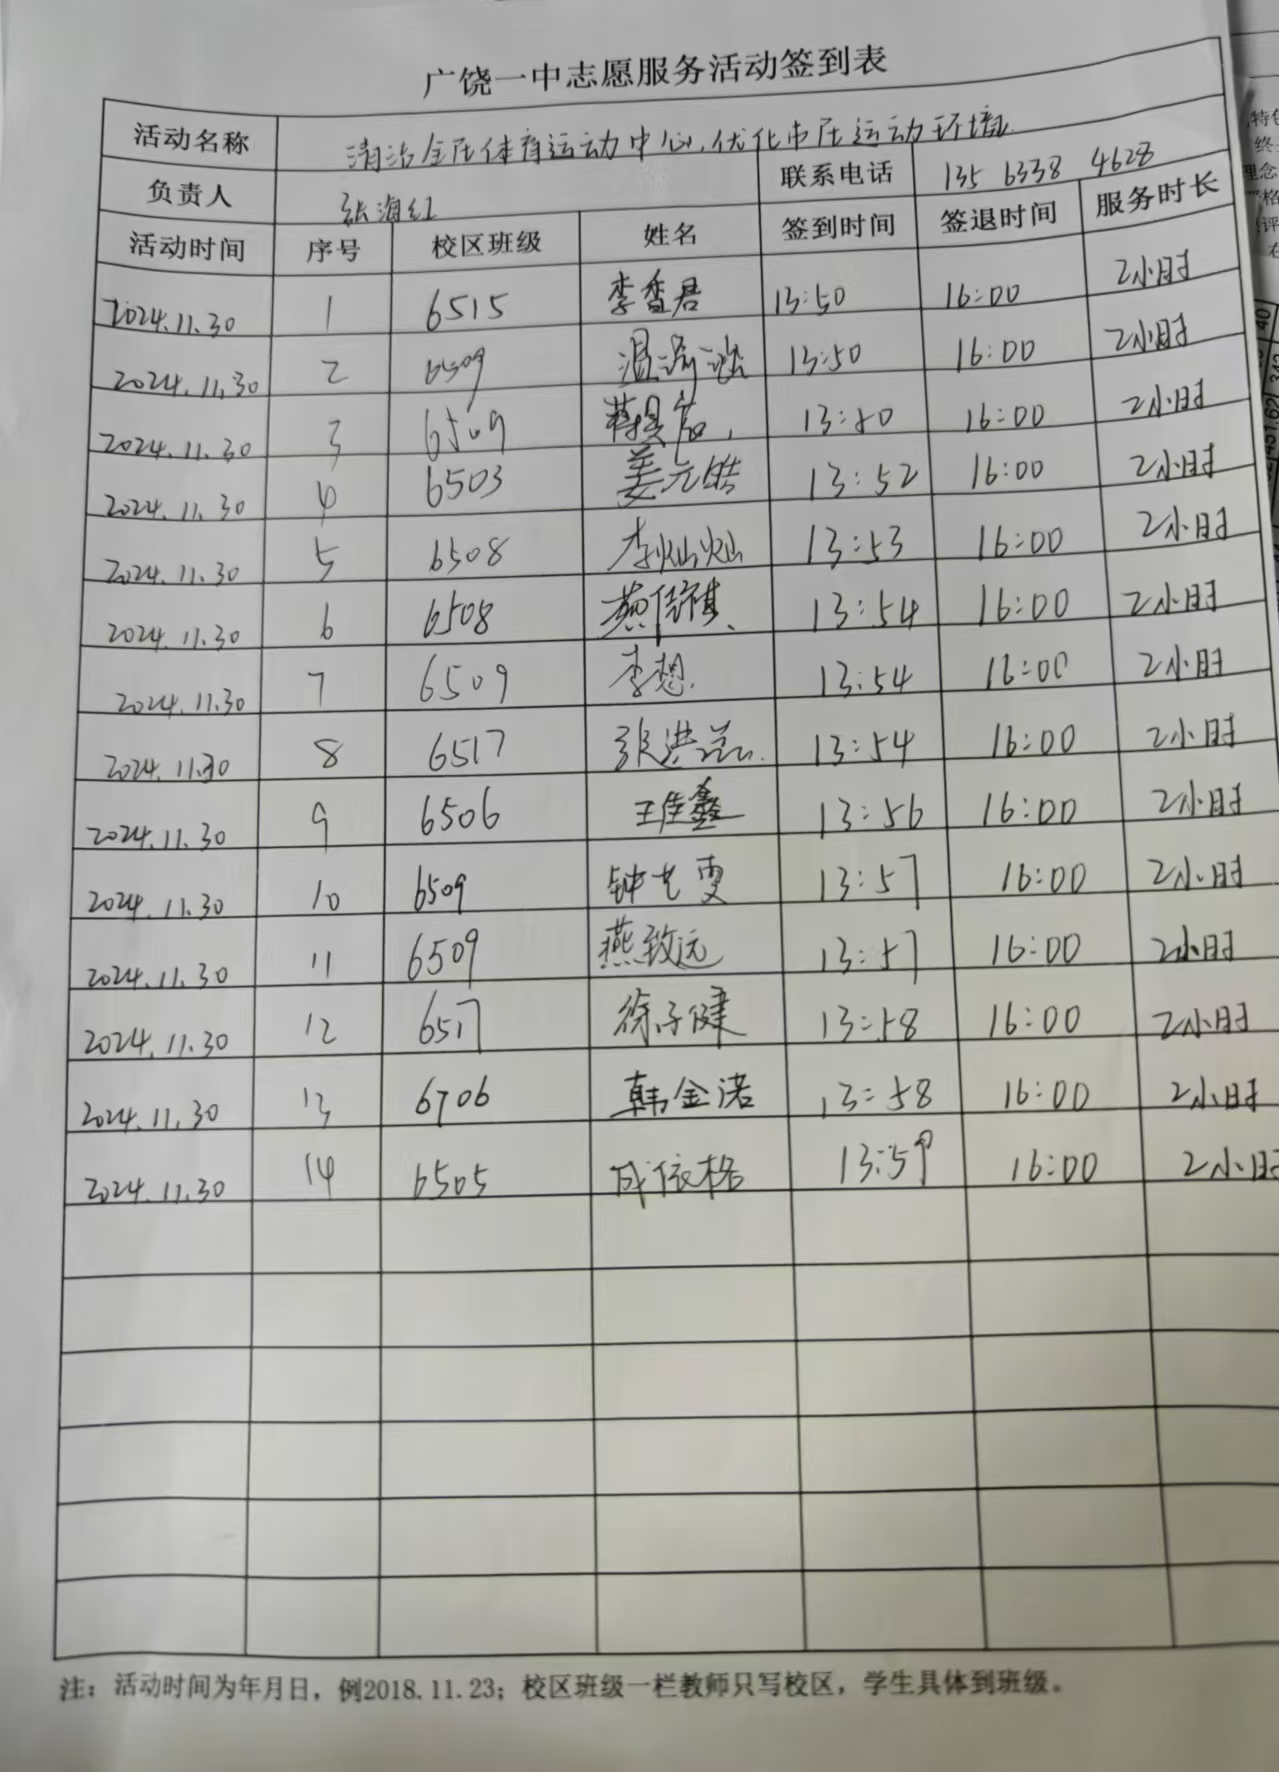 广饶一中志愿服务活动签到表
活动名称 清洁全民体育运动中心,优化市民运动环境
负责人 张海红 联系电话 135 6338 4628
活动时间 序号 校区班级 姓名 签到时间 签退时间 服务时长
2024.11.30 1 6515 李香君 13:50 16:00 2小时
2024.11.30 2 6509 13:50 16:00 2小时
2024.11.30 3 6509 13:50 16:00 2小时
2024.11.30 4 6503 姜元皓 13:52 16:00 2小时
2024.11.30 5 6508 李灿灿 13:53 16:00 2小时
2024.11.30 6 6508 13:54 16:00 2小时
2024.11.30 7 6509 李想 13:54 16:00 2小时
2024.11.30 8 6517 13:54 16:00 2小时
2024.11.30 9 6506 王佳鑫 13:56 16:00 2小时
2024.11.30 10 6509 13:57 16:00 2小时
2024.11.30 11 6509 燕致远 13:57 16:00 2小时
2024.11.30 12 6517 徐子健 13:58 16:00 2小时
2024.11.30 13 6706 韩金诺 13:58 16:00 2小时
2024.11.30 14 6505 成依格 13:59 16:00 2小时
注：活动时间为年月日，例2018.11.23；校区班级一栏教师只写校区，学生具体到班级。